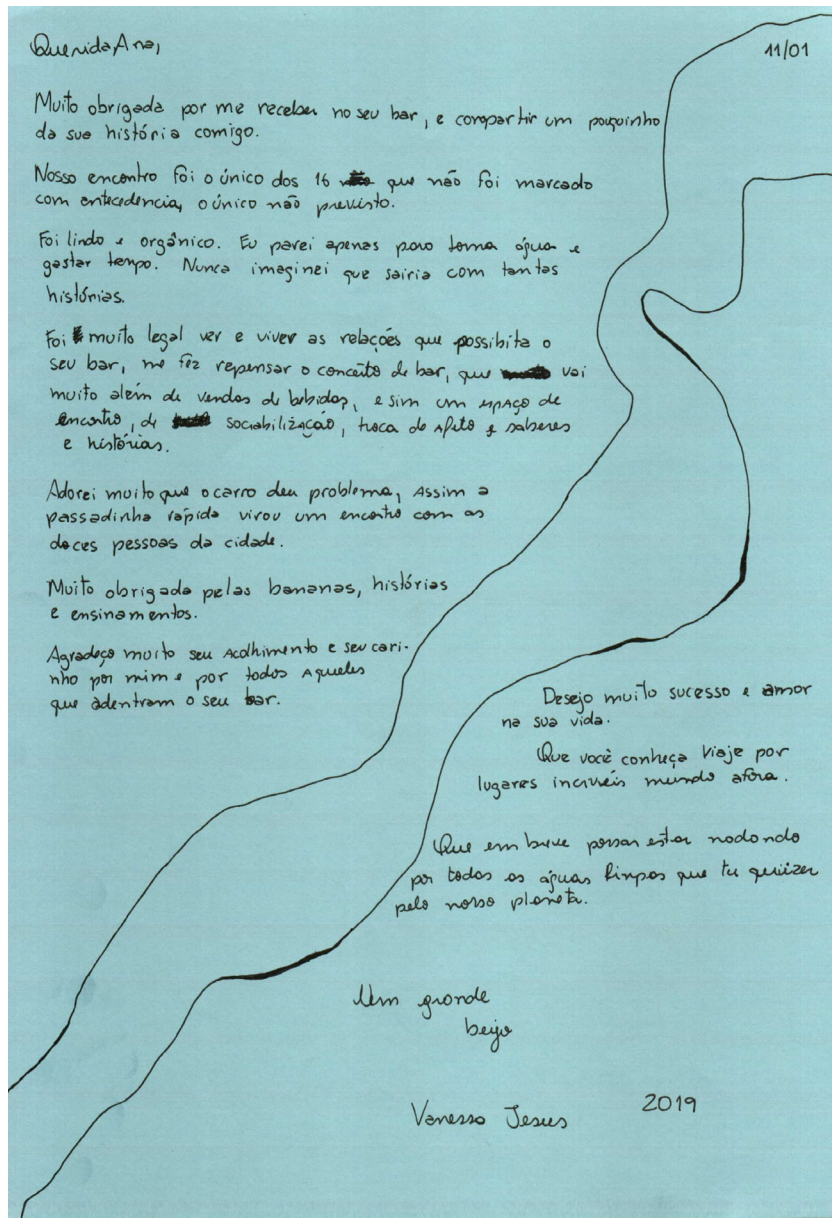 Querida Ana,
11/01
Muito obrigada por me receber no seu bar, e compartir um pouquinho
da sua história comigo.
Nosso encontro foi o único dos 16 que não foi marcado
com antecedencia, o único não previsto.
Foi lindo e orgânico. Eu parei apenas para toma água e
gastar tempo. Nunca imaginei que sairia com tantas
histórias.
Foi muito legal ver e viver as relações que possibita o
seu bar, me fez repensar o conceito de bar, que vai
muito além de vendas de bebidas, e sim um espaço de
encontro, de sociabilização, troca de afeto e saberes
e histórias.
Adorei muito que o carro deu problema, Assim a
passadinha rápida virou um encontro com as
doces pessoas da cidade.
Muito obrigada pelas bananas, histórias
e ensinamentos.
Agradeço muito seu Acolhimento e seu cari-
nho por mim e por todos Aqueles
que adentram o seu bar.
Desejo muito sucesso e amor
na sua vida.
Que você conheça viaje por
lugares incriveis mundo afora.
Que em breve possar estar nadando
por todas as águas limpas que tu quizer
pelo nosso planeta.
Um grande
beijo
Vanessa Jesus
2019